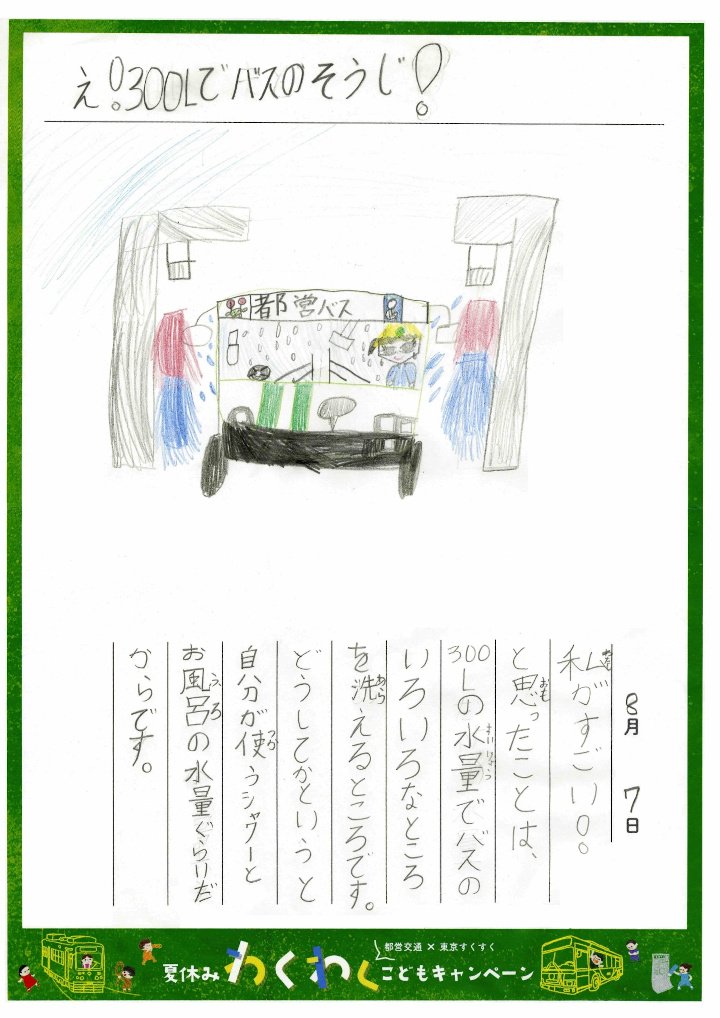 え!300Lでバスのそうじ!
都営バス
8月 7日
私がすごい!!
と思ったことは、
300Lの水量でバスの
いろいろなところ
を洗えるところです。
どうしてかというと
自分が使うシャワーと
お風呂の水量ぐらいだ
からです。
都営交通×東京すくすく
夏休みわくわくこどもキャンペーン